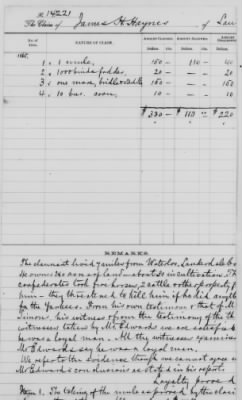 No. 14221
The Claim of James H. Haynes of Lau
No. of Item. NATURE OF CLAIM. AMOUNT CLAIMED. AMOUNT ALLOWED. AMOUNT DISALLOWED.
Dollars. Cts. Dollars. Cts. Dollars.
1 1 mule, 150 — 110 — 40
2 1000 binds fodder, 20 — 20
3 one mare, bridle & saddle 150 — 150
4 10 bus. corn, 10 — 10
$330 — $110 — $220
REMARKS.
The claimant lived 7 miles from Waterloo, Lauderdale Co
He owns 340 acres of land - about 35 in cultivation. The
confederates took five horses, 2 cattle & other property from
him - they threatened to kill him if he did anything
for the Yankees. From his own testimony & that of M
Simon, his witness & from the testimony of the
witnesses taken by Mr Edwards we are satisfied
he was a loyal man. All the witnesses examined
Mr Edwards say he was a loyal man.
We refer to the evidence though we cannot agree
Mr Edwards conclusion as stated in his report.
Loyalty proved
Item 1. The taking of the mule is proved by the claimant